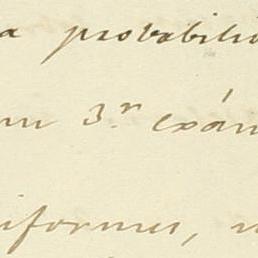 a probabili
un 3.r exám
iformes,